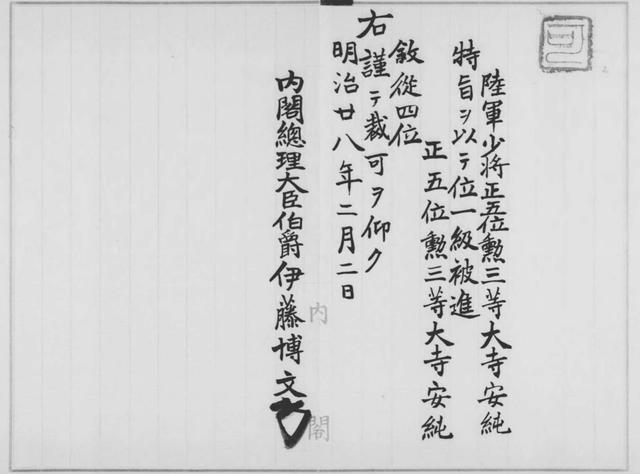 可
陸軍少将正五位勲三等大寺安純
特旨ヲ以テ位一級被進
正五位勲三等大寺安純
敘從四位
右謹テ裁可ヲ仰ク
明治廿八年二月二日
内閣總理大臣伯爵伊藤博文
内閣